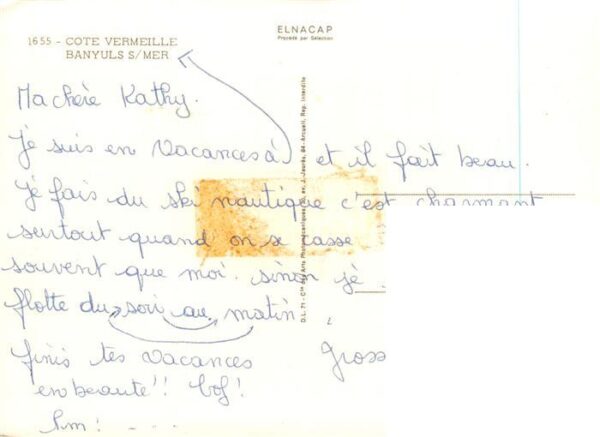 ELNACAP
Procédé par Sélection
1655 - COTE VERMEILLE
BANYULS S/MER
Ma chère Kathy.
Je suis en vacances à et il fait beau.
Je fais du ski nautique c'est charmant
surtout quand on se casse
souvent que moi. sinon je
flotte du soir au matin
finis tes vacances Gross
en beauté!! bof!
D.L. 71 - Cie des Arts Photomécaniques
J. Jaurès, 94 - Arcueil. Rep. interdite